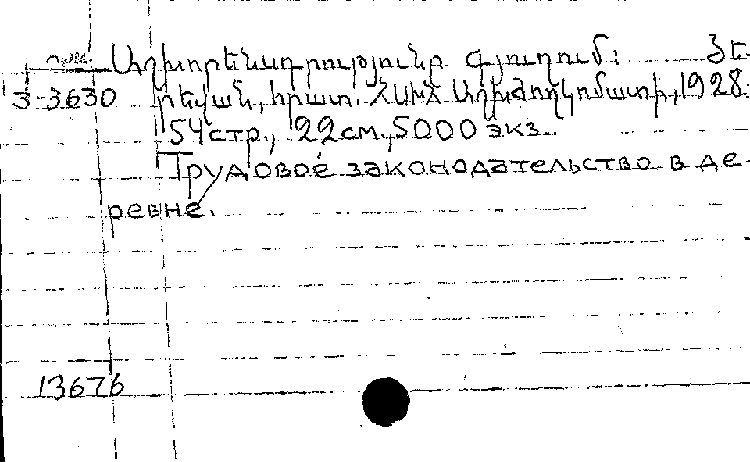 Աշխօրենադրությունը գյուղում։ Յե-
3-3630 րեվան, հրատ. ՀՍԽՀ Աշխժողկոմատի, 1928.
54 стр., 22 см, 5000 экз.
Трудовое законодательство в де-
ревне.
13676